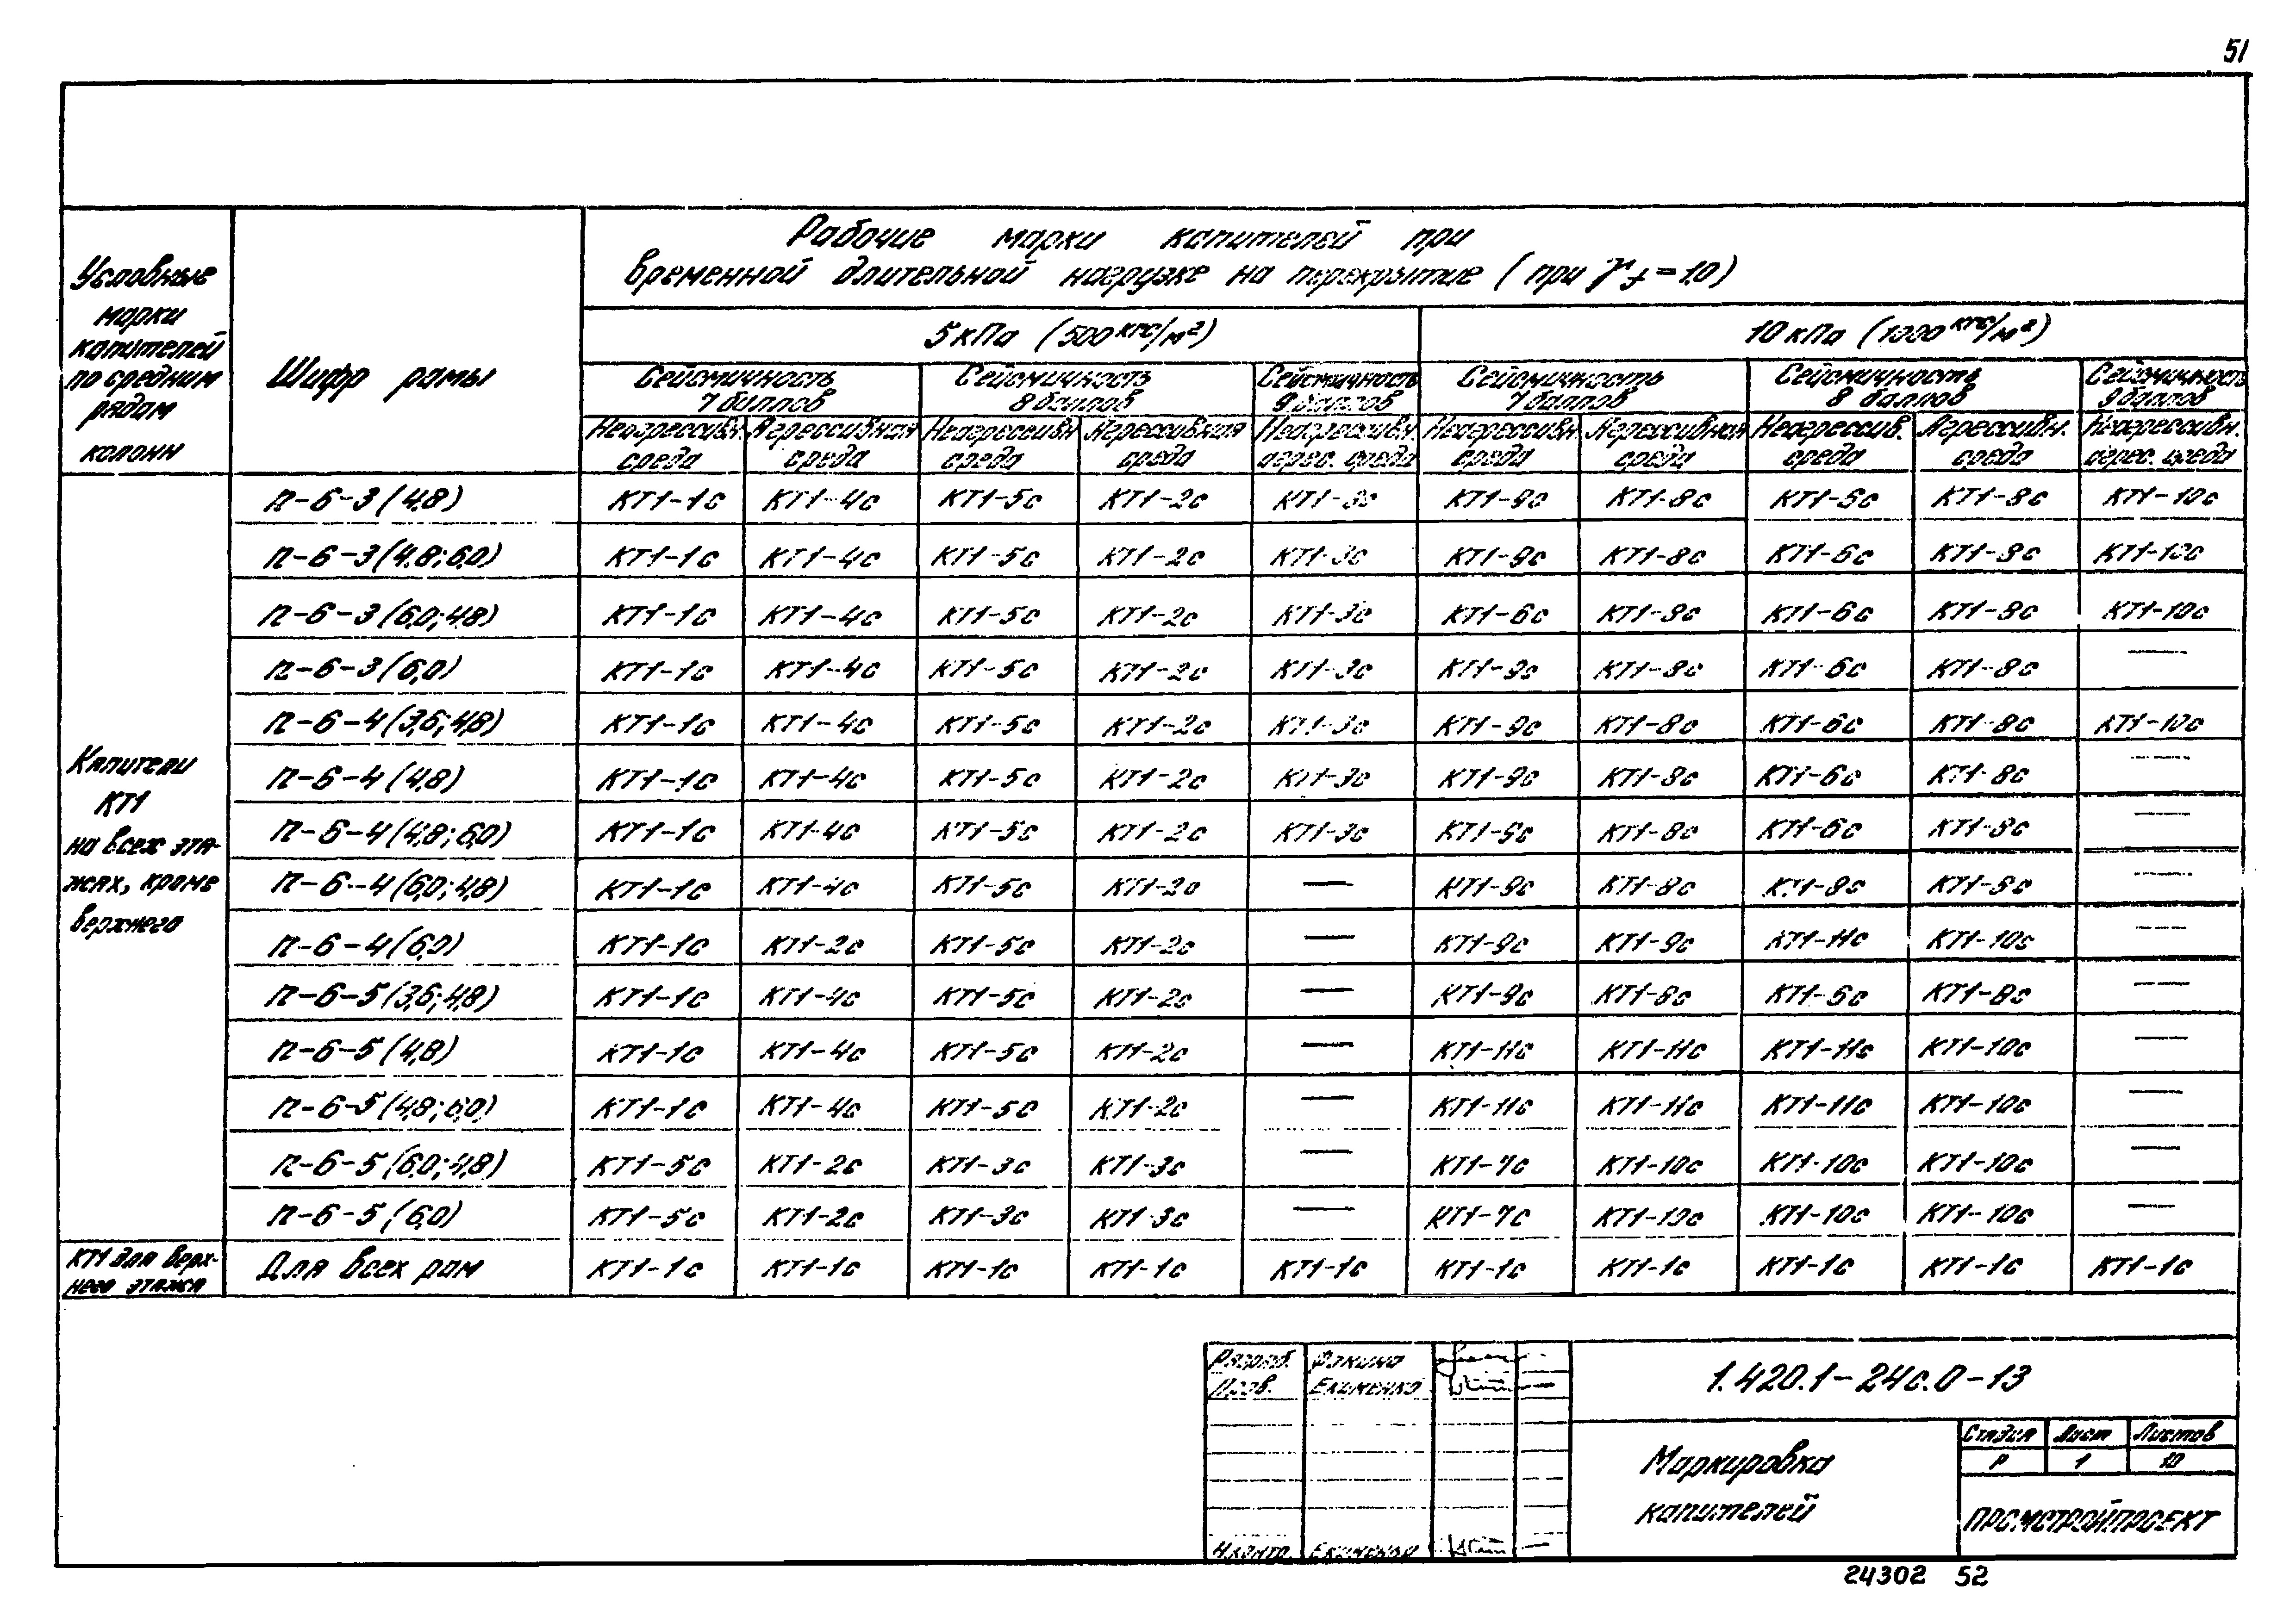 51
Рабочие марки капителей при
временной длительной нагрузке на перекрытие (при γf=1.0)
Условные
марки
капителей
по средним
рядам
колонн
Шифр рамы
5кПа (500кгс/м²) 10кПа (1000кгс/м²)
Сейсмичность 7 баллов Сейсмичность 8 баллов Сейсмичность 9 баллов Сейсмичность 7 баллов Сейсмичность 8 баллов Сейсмичность 9 баллов
Неагрессивн. среда Агрессивная среда Неагрессивн. среда Агрессивная среда Неагрессивн. агрес. среда Неагрессивн. среда Агрессивная среда Неагрессив. среда Агрессивн. среда Неагрессивн. агрес. среда
Капители
КТ1
на всех эта-
жах, кроме
верхнего
п-6-3(4,8) КТ1-1с КТ1-4с КТ1-5с КТ1-2с КТ1-3с КТ1-9с КТ1-8с КТ1-6с КТ1-8с КТ1-10с
п-6-3(4,8;6,0) КТ1-1с КТ1-4с КТ1-5с КТ1-2с КТ1-3с КТ1-9с КТ1-8с КТ1-6с КТ1-8с КТ1-10с
п-6-3(6,0;4,8) КТ1-1с КТ1-4с КТ1-5с КТ1-2с КТ1-3с КТ1-6с КТ1-8с КТ1-6с КТ1-8с КТ1-10с
п-6-3(6,0) КТ1-1с КТ1-4с КТ1-5с КТ1-2с КТ1-3с КТ1-9с КТ1-8с КТ1-6с КТ1-8с —
п-6-4(3,6;4,8) КТ1-1с КТ1-4с КТ1-5с КТ1-2с КТ1-3с КТ1-9с КТ1-8с КТ1-6с КТ1-8с КТ1-10с
п-6-4(4,8) КТ1-1с КТ1-4с КТ1-5с КТ1-2с КТ1-3с КТ1-9с КТ1-8с КТ1-6с КТ1-8с —
п-6-4(4,8;6,0) КТ1-1с КТ1-4с КТ1-5с КТ1-2с КТ1-3с КТ1-9с КТ1-8с КТ1-6с КТ1-8с —
п-6-4(6,0;4,8) КТ1-1с КТ1-4с КТ1-5с КТ1-2с — КТ1-9с КТ1-8с КТ1-8с КТ1-8с —
п-6-4(6,0) КТ1-1с КТ1-2с КТ1-5с КТ1-2с — КТ1-9с КТ1-9с КТ1-11с КТ1-10с —
п-6-5(3,6;4,8) КТ1-1с КТ1-4с КТ1-5с КТ1-2с — КТ1-9с КТ1-8с КТ1-6с КТ1-8с —
п-6-5(4,8) КТ1-1с КТ1-4с КТ1-5с КТ1-2с — КТ1-11с КТ1-11с КТ1-11с КТ1-10с —
п-6-5(4,8;6,0) КТ1-1с КТ1-4с КТ1-5с КТ1-2с — КТ1-11с КТ1-11с КТ1-11с КТ1-10с —
п-6-5(6,0;4,8) КТ1-5с КТ1-2с КТ1-3с КТ1-3с — КТ1-7с КТ1-10с КТ1-10с КТ1-10с —
п-6-5(6,0) КТ1-5с КТ1-2с КТ1-3с КТ1-3с — КТ1-7с КТ1-10с КТ1-10с КТ1-10с —
КТ1 для верх-
него этажа
Для всех рам КТ1-1с КТ1-1с КТ1-1с КТ1-1с КТ1-1с КТ1-1с КТ1-1с КТ1-1с КТ1-1с КТ1-1с
Разраб. Фокина
Пров. Екименко
Н.контр. Екименко
1.420.1-24с.0-13
Маркировка
капителей
Стадия Лист Листов
Р 1 10
ПРОМСТРОЙПРОЕКТ
24302 52